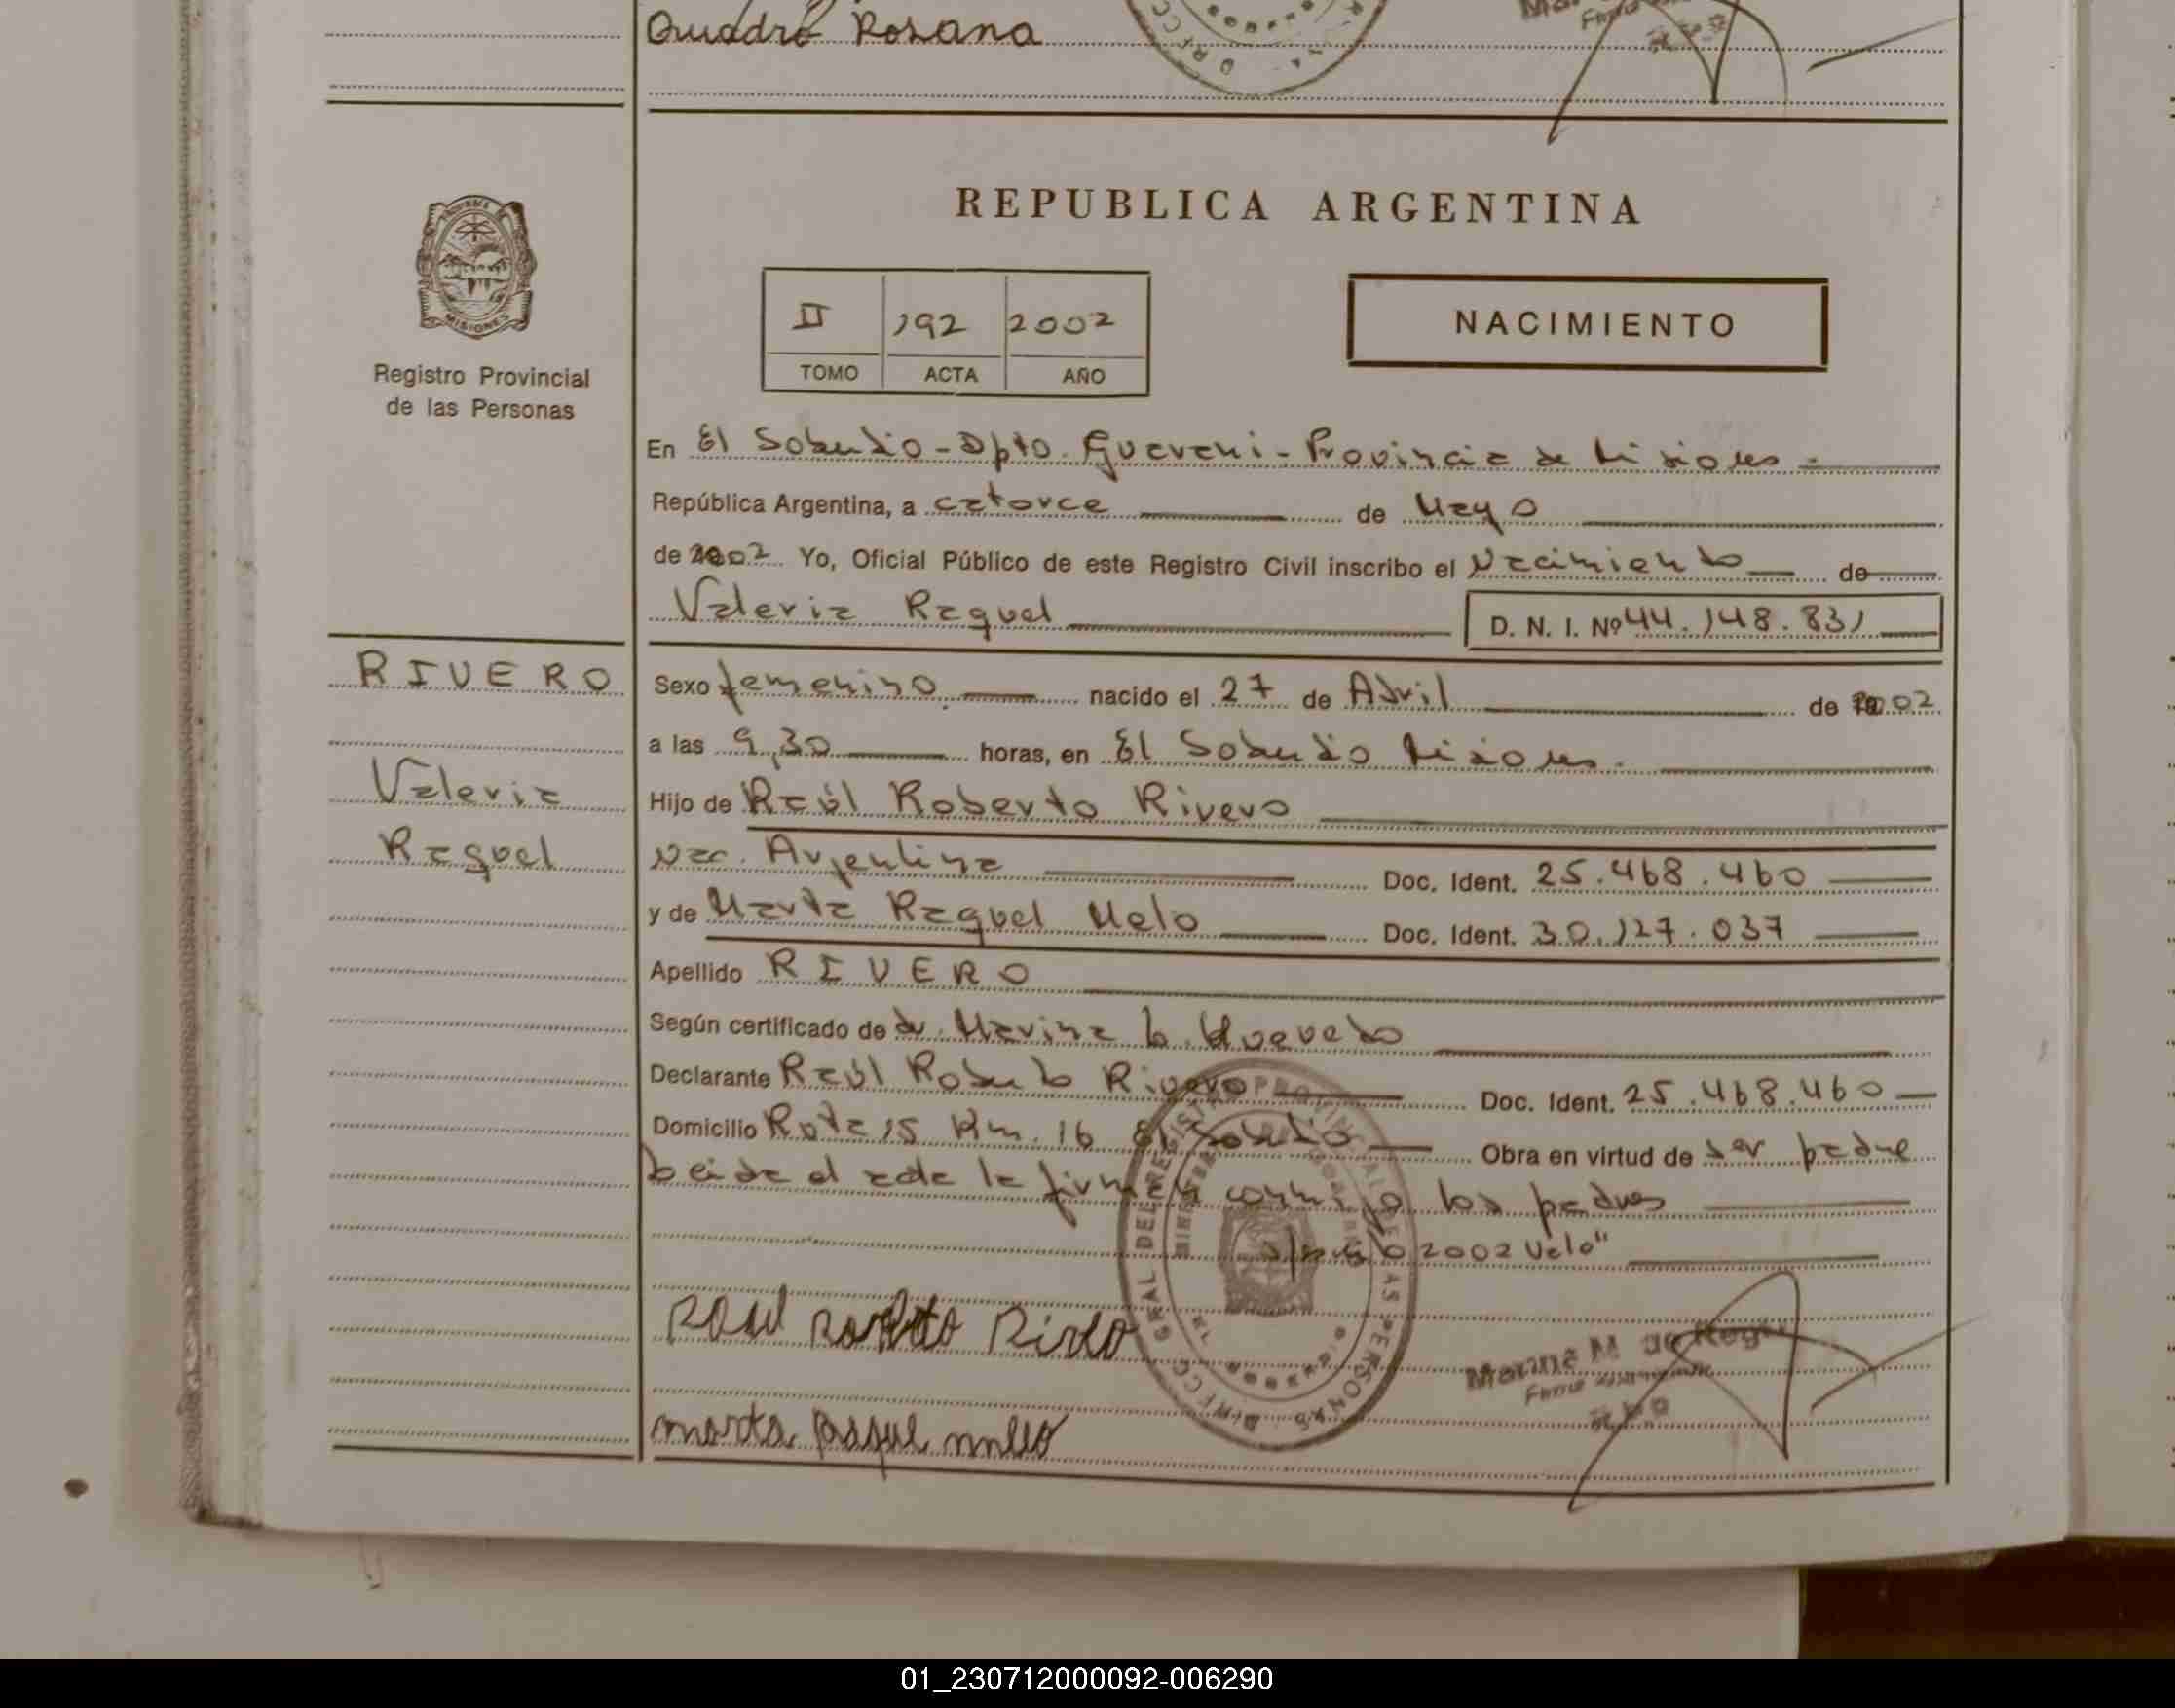 Quadro Rosana
REPUBLICA ARGENTINA
MISIONES
Registro Provincial
de las Personas
II 192 2002
TOMO ACTA AÑO
NACIMIENTO
En El Soberbio - Dpto. Guarani - Provincia de Misiones -
República Argentina, a catorce de Mayo
de 2002 Yo, Oficial Público de este Registro Civil inscribo el Nacimiento de
Valeria Raquel D. N. I. Nº 44.148.831
RIVERO
Valeria
Raquel
Sexo femenino nacido el 27 de Abril de 2002
a las 9,30 horas, en El Soberbio Misiones.
Hijo de Raúl Roberto Rivero
Nac. Argentina Doc. Ident. 25.468.460
y de Marta Raquel Melo Doc. Ident. 30.127.037
Apellido RIVERO
Según certificado de dr. Marina
Declarante Raúl Roberto Rivero Doc. Ident. 25.468.460
Domicilio Ruta 15 Km. 16 El Soberbio Obra en virtud de ser padre
Leida el acta la firman conmigo los padres
2002 Vale"
Raul Roberto Rivero
Marina M de
marta Raquel mello
01_230712000092-006290